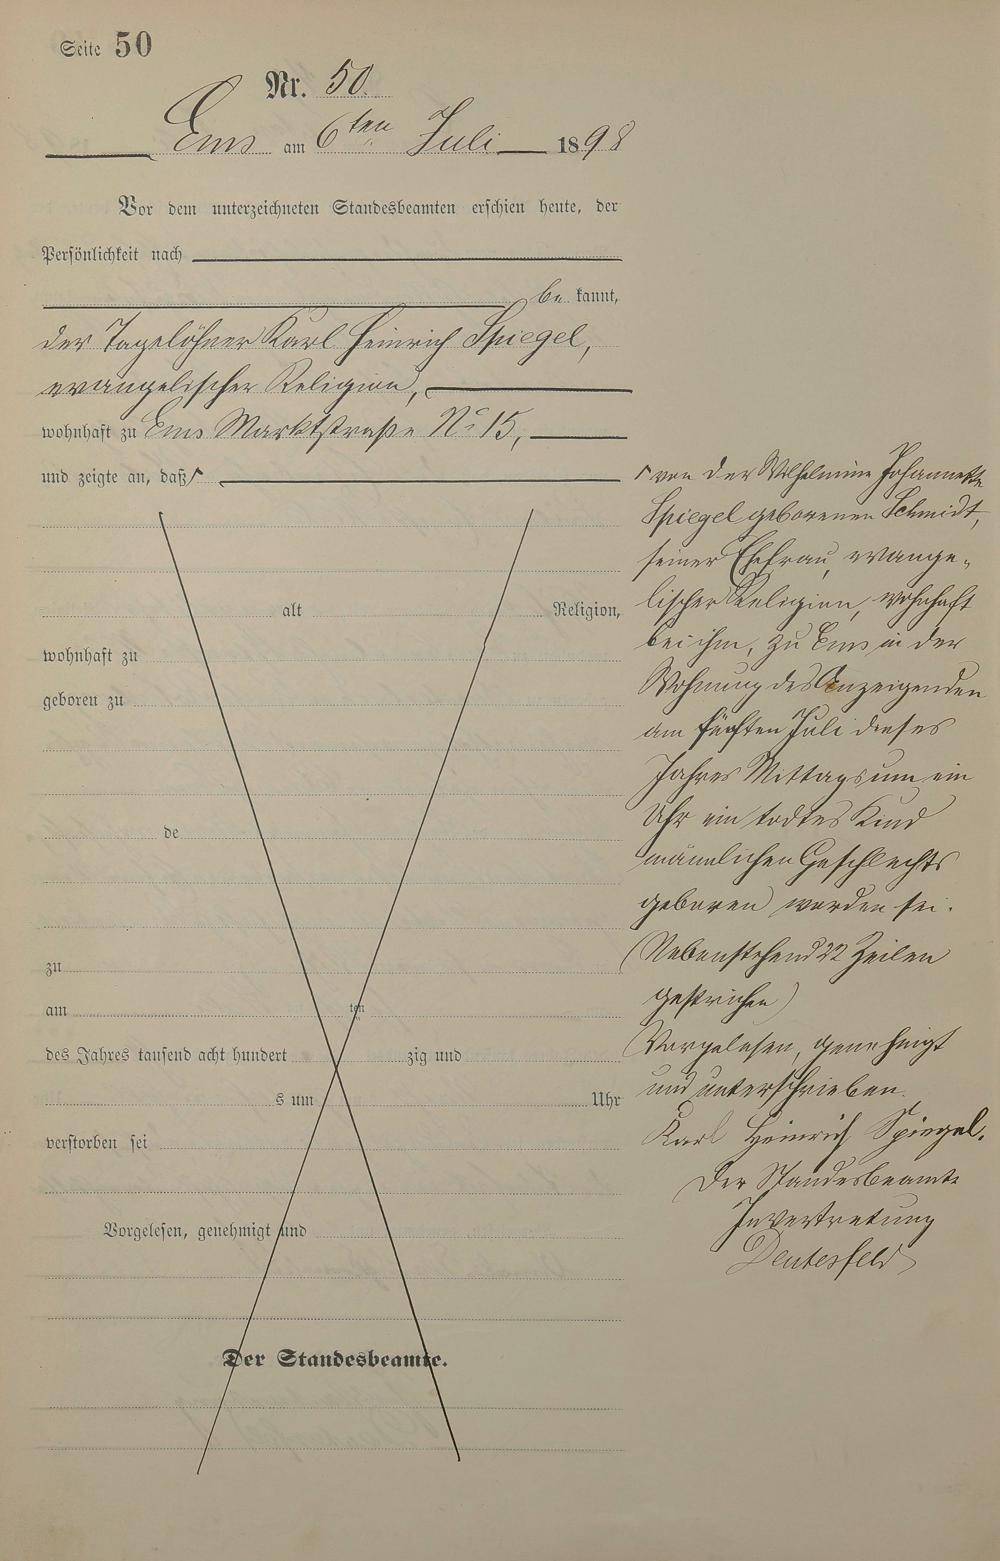 Seite 50
Nr. 50.
Ems am 6ten Juli 1898
Vor dem unterzeichneten Standesbeamten erschien heute, der
Persönlichkeit nach
be kannt,
der Tagelöhner Karl Heinrich Spiegel,
evangelischer Religion,
wohnhaft zu Ems Marktstraße No 15,
und zeigte an, daß
alt Religion,
wohnhaft zu
geboren zu
de
zu
am ten
des Jahres tausend acht hundert zig und
s um Uhr
verstorben sei
Vorgelesen, genehmigt und
Der Standesbeamte.
von der Wilhelmine Johannette
Spiegel geborenen Schmidt,
seiner Ehefrau, evange-
lischer Religion, wohnhaft
bei ihm, zu Ems in der
Wohnung des Anzeigenden
am fünften Juli dieses
Jahres Mittags um ein
Uhr ein todtes Kind
männlichen Geschlechts
geboren worden sei.
(Nebenstehend 22 Zeilen
gestrichen)
Vorgelesen, genehmigt
und unterschrieben.
Karl Heinrich Spiegel.
Der Standesbeamte
In Vertretung